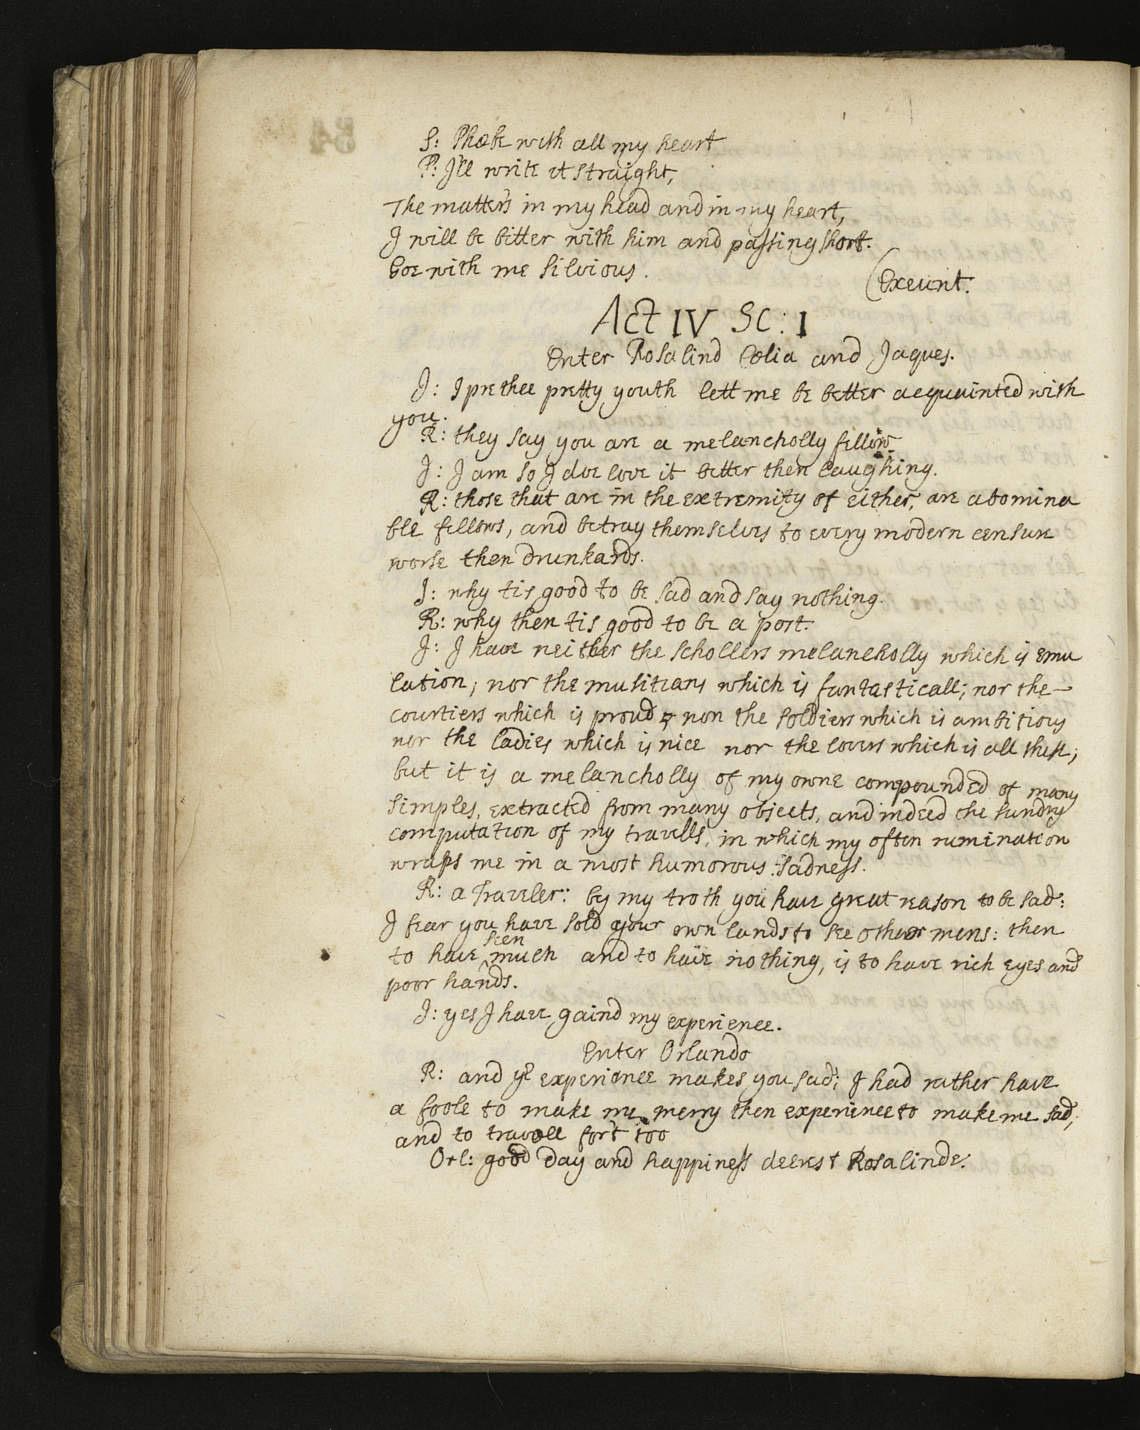 S: Phœbe with all my heart
P: I'le write it straight,
The matter's in my head and in my heart,
I will be bitter with him and passing short.
Goe with me Silvious.
(Exeunt.
Act IV Sc: I
Enter Rosalind Cœlia and Jaques.
J: I prethee pretty youth lett me be better acquainted with
you.
R: they say you are a melancholly fellow
J: I am so I doe love it better then laughing.
R: those that are in the extremity of either, are abomina
ble fellows, and betray themselves to every modern censure
worse then drunkards.
J: why tis good to be sad and say nothing.
R: why then tis good to be a post.
J: I have neither the schollers melancholly which is emu
lation; nor the musitians which is fantasticall; nor the
courtiers which is proud; non the soldiers which is ambitious
nor the ladies which is nice nor the lovers which is all these;
but it is a melancholly of my owne compounded of many
simples, extracted from many objects, and indeed the sundry
computation of my travells, in which my often rumination
wraps me in a most humorous sadness.
R: a Traveler: by my troth you have great reason to be sad:
I fear you have sold your own lands to see other mens: then
to have seen much and to have nothing, is to have rich eyes and
poor hands.
J: yes I have gaind my experience.
Enter Orlando
R: and yr experience makes you sad; I had rather have
a foole to make me merry then experience to make me sad;
and to travell for't too
Orl: good day and happiness deerest Rosalinde.